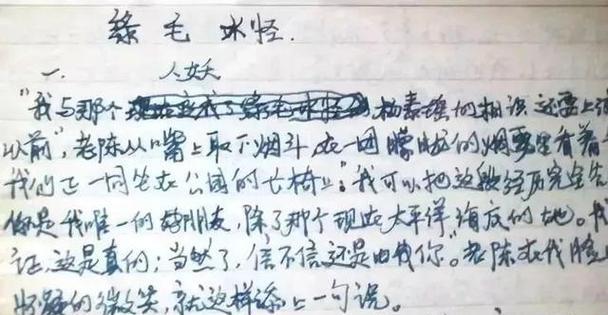 绿毛水怪.
一. 人妖
"我与那个杨素瑶的相识还要上
以前",老陈从嘴上取下烟斗,在一团朦胧的烟雾里看着
我们正一同坐在公园的长椅上。"我可以把这段经历完全告
你是我唯一的好朋友,除了那个现在太平洋海底的她。我
证,这是真的;当然了,信不信还是由你。"老陈在我脸上
的微笑,就这样添上一句说。